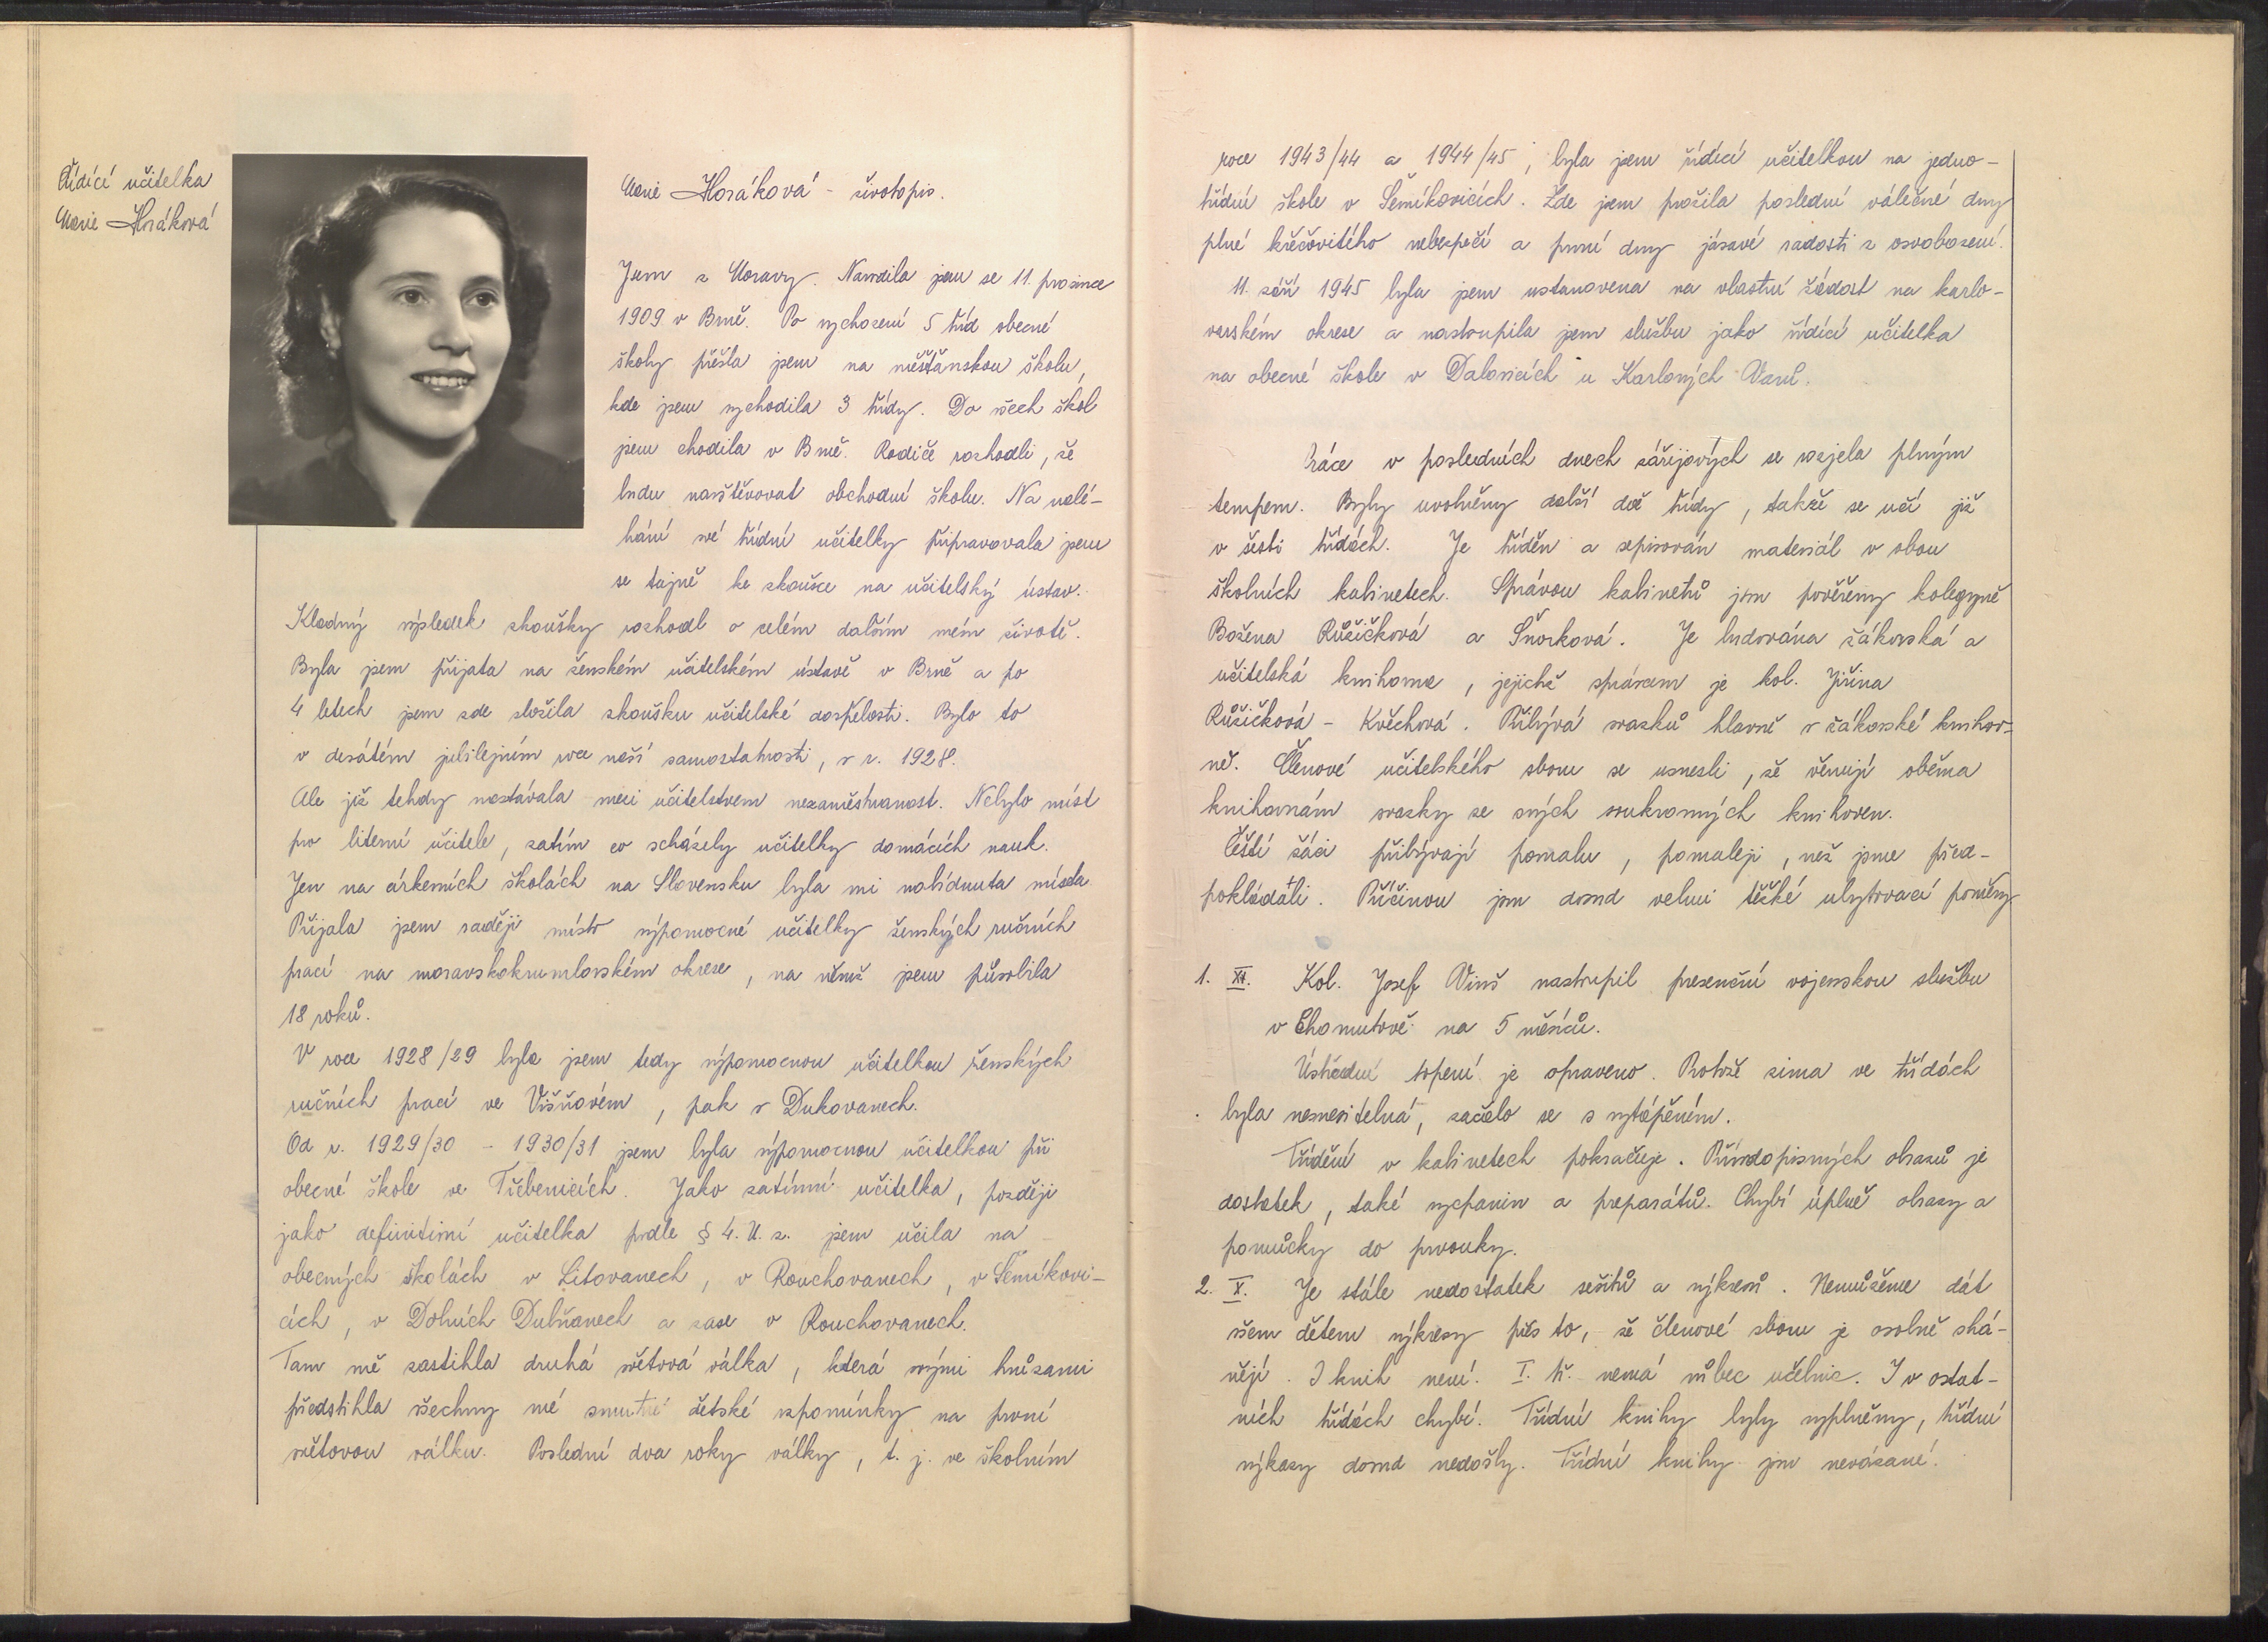 Řídící učitelka
Marie Horáková
Marie Horáková - životopis.
Jsem z Moravy. Narodila jsem se 11. prosince
1909 v Brně. Po vychození 5 tříd obecné
školy přešla jsem na měšťanskou školu,
kde jsem vychodila 3 třídy. Do všech škol
jsem chodila v Brně. Rodiče rozhodli, že
budu navštěvovat obchodní školu. Na nalé-
hání své třídní učitelky připravovala jsem
se tajně ke zkoušce na učitelský ústav.
Kladný výsledek zkoušky rozhodl o celém dalším mém životě.
Byla jsem přijata na ženském učitelském ústavě v Brně a po
4 letech jsem zde složila zkoušku učitelské dospělosti. Bylo to
v desátém jubilejním roce naší samostatnosti, v r. 1928.
Ale již tehdy nastávala mezi učitelstvem nezaměstnanost. Nebylo míst
pro literní učitele, zatím co scházely učitelky domácích nauk.
Jen na církevních školách na Slovensku byla mi nabídnuta místa.
Přijala jsem raději místo výpomocné učitelky ženských ručních
prací na moravskokrumlovském okrese, na němž jsem působila
18 roků.
V roce 1928/29 byla jsem tedy výpomocnou učitelkou ženských
ručních prací ve Višňovém, pak v Dukovanech.
Od r. 1929/30 - 1930/31 jsem byla výpomocnou učitelkou při
obecné škole ve Třebenicích. Jako zatímní učitelka, později
jako definitivní učitelka podle § 4. U. z. jsem učila na
obecných školách v Litovanech, v Rouchovanech, v Šemíkovi-
cích, v Dolních Dubňanech a zase v Rouchovanech.
Tam mě zastihla druhá světová válka, která svými hrůzami
předstihla všechny mé smutné dětské vzpomínky na první
světovou válku. Poslední dva roky války, t. j. ve školním
roce 1943/44 a 1944/45, byla jsem řídící učitelkou na jedno-
třídní škole v Šemíkovicích. Zde jsem prožila poslední válečné dny
plné křečovitého nebezpečí a první dny jásavé radosti z osvobození.
11. září 1945 byla jsem ustanovena na vlastní žádost na karlo-
varském okrese a nastoupila jsem službu jako řídící učitelka
na obecné škole v Dalovicích u Karlových Varů.
Práce v posledních dnech zářijových se rozjela plným
tempem. Byly uvolněny další dvě třídy, takže se učí již
v šesti třídách. Je tříděn a sepisován materiál v obou
školních kabinetech. Správou kabinetů jsou pověřeny kolegyně
Božena Růžičková a Šnorková. Je budována žákovská a
učitelská knihovna, jejichž správcem je kol. Jiřina
Růžičková - Květchová. Přibývá svazků hlavně v žákovské knihov-
ně. Členové učitelského sboru se usnesli, že věnují oběma
knihovnám svazky ze svých soukromých knihoven.
Čeští žáci přibývají pomalu, pomaleji, než jsme před-
pokládali. Příčinou jsou dosud velmi těžké ubytovací poměry
1. XI. Kol. Josef Vinš nastoupil presenční vojenskou službu
v Chomutově na 5 měsíců.
Ústřední topení je opraveno. Protože zima ve třídách
byla nesnesitelná, začalo se s vytápěním.
Třídění v kabinetech pokračuje. Přírodopisných obrazů je
dostatek, také vycpanin a preparátů. Chybí úplně obrazy a
pomůcky do prvouky.
2. X. Je stále nedostatek sešitů a výkresů. Nemůžeme dát
všem dětem výkresy přes to, že členové sboru je osobně shá-
nějí. I knih není. I. tř. nemá vůbec učebnic. I v ostat-
ních třídách chybí. Třídní knihy byly vyplněny, třídní
výkazy dosud nedošly. Třídní knihy jsou nevázané.